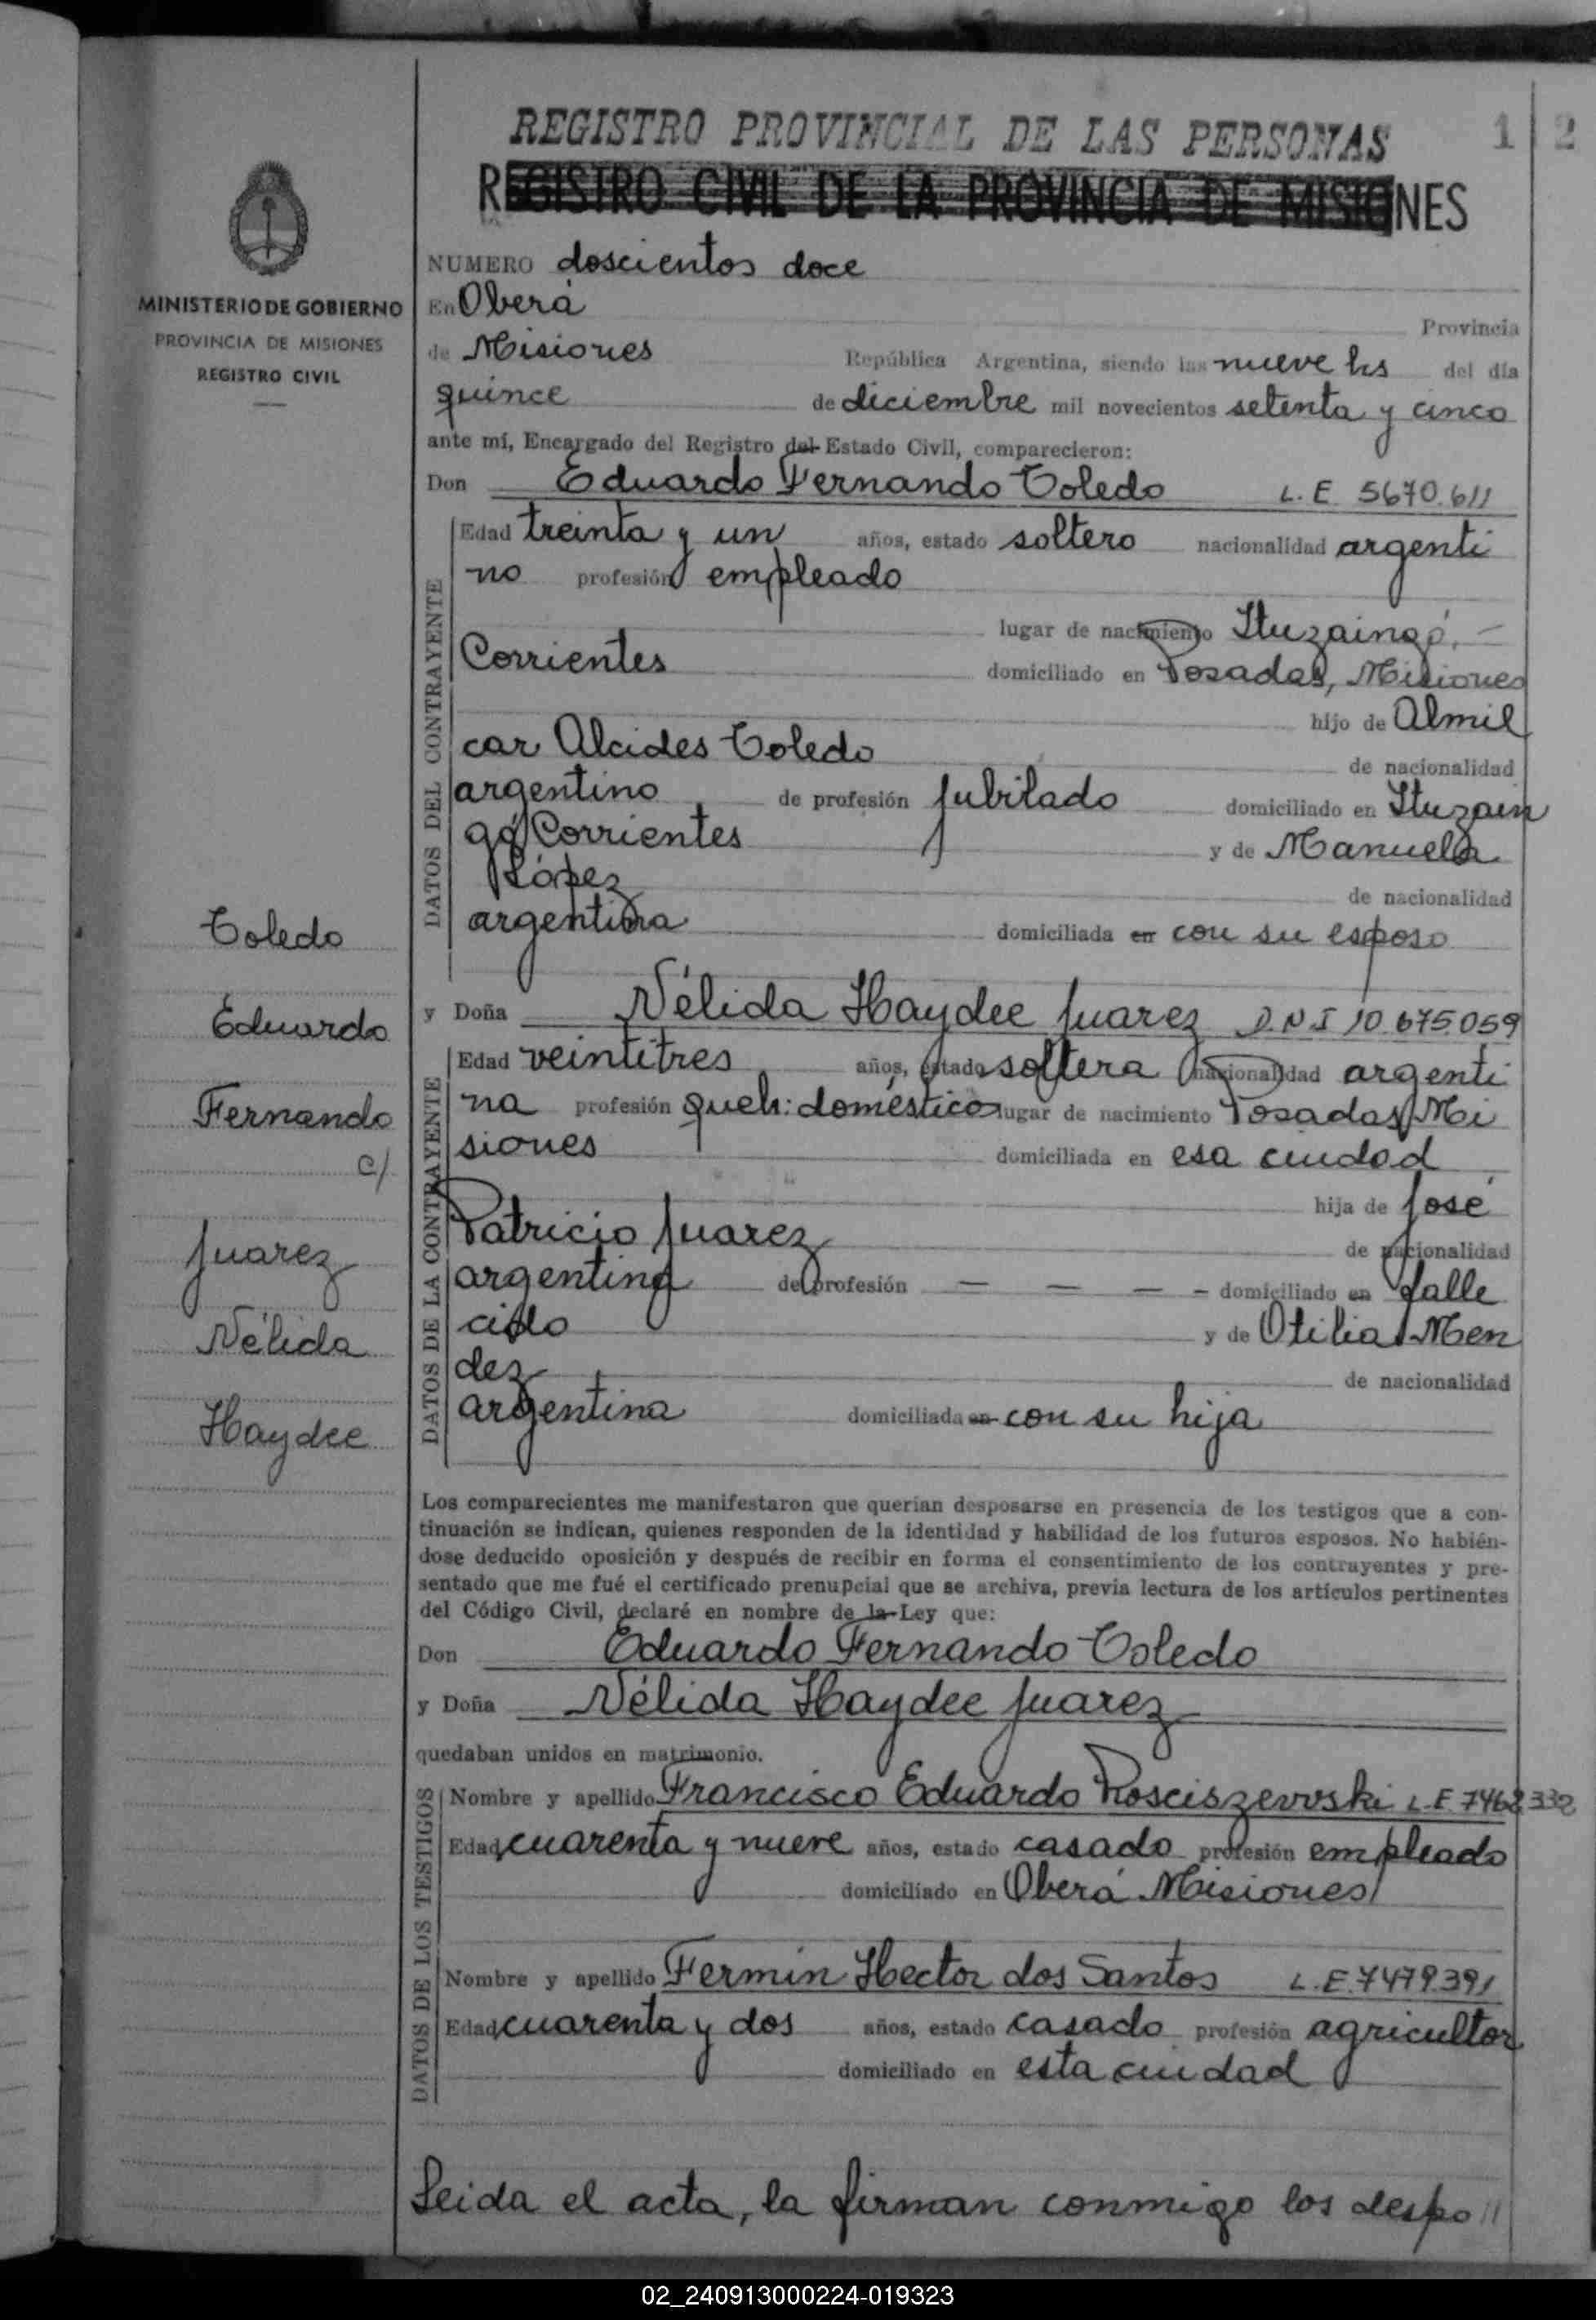 REGISTRO PROVINCIAL DE LAS PERSONAS
1 2
REGISTRO CIVIL DE LA PROVINCIA DE MISIONES
MINISTERIO DE GOBIERNO
PROVINCIA DE MISIONES
REGISTRO CIVIL
NUMERO doscientos doce
En Oberá Provincia
de Misiones República Argentina, siendo las nueve hs del día
quince de diciembre mil novecientos setenta y cinco
ante mí, Encargado del Registro del Estado Civil, comparecieron:
Don Eduardo Fernando Toledo L.E 5670.611
DATOS DEL CONTRAYENTE
Edad treinta y un años, estado soltero nacionalidad argenti
no profesión empleado
lugar de nacimiento Ituzaingó.-
Corrientes domiciliado en Posadas, Misiones
hijo de Almil
car Alcides Toledo de nacionalidad
argentino de profesión jubilado domiciliado en Ituzain
gó Corrientes y de Manuela
López de nacionalidad
argentina domiciliada en con su esposo
y Doña Nélida Haydee Juarez D.N.I 10.675.059
DATOS DE LA CONTRAYENTE
Edad veintitres años, estado soltera nacionalidad argenti
na profesión queh: doméstico lugar de nacimiento Posadas, Mi
siones domiciliada en esa ciudad
hija de José
Patricio Juarez de nacionalidad
argentina de profesión — — — - domiciliado en falle
cido y de Otilia Men
dez de nacionalidad
argentina domiciliada en con su hija
Los comparecientes me manifestaron que querian desposarse en presencia de los testigos que a con-
tinuación se indican, quienes responden de la identidad y habilidad de los futuros esposos. No habién-
dose deducido oposición y después de recibir en forma el consentimiento de los contrayentes y pre-
sentado que me fué el certificado prenupcial que se archiva, previa lectura de los artículos pertinentes
del Código Civil, declaré en nombre de la Ley que:
Don Eduardo Fernando Toledo
y Doña Nélida Haydee Juarez
quedaban unidos en matrimonio.
DATOS DE LOS TESTIGOS
Nombre y apellido Francisco Eduardo Rosciszevvski L.E. 7462.332
Edad cuarenta y nueve años, estado casado profesión empleado
domiciliado en Oberá Misiones
Nombre y apellido Fermin Hector dos Santos L.E.7479.391
Edad cuarenta y dos años, estado casado profesión agricultor
domiciliado en esta ciudad
Leida el acta, la firman conmigo los despo //
Toledo
Eduardo
Fernando
c/
Juarez
Nélida
Haydee
02_240913000224-019323